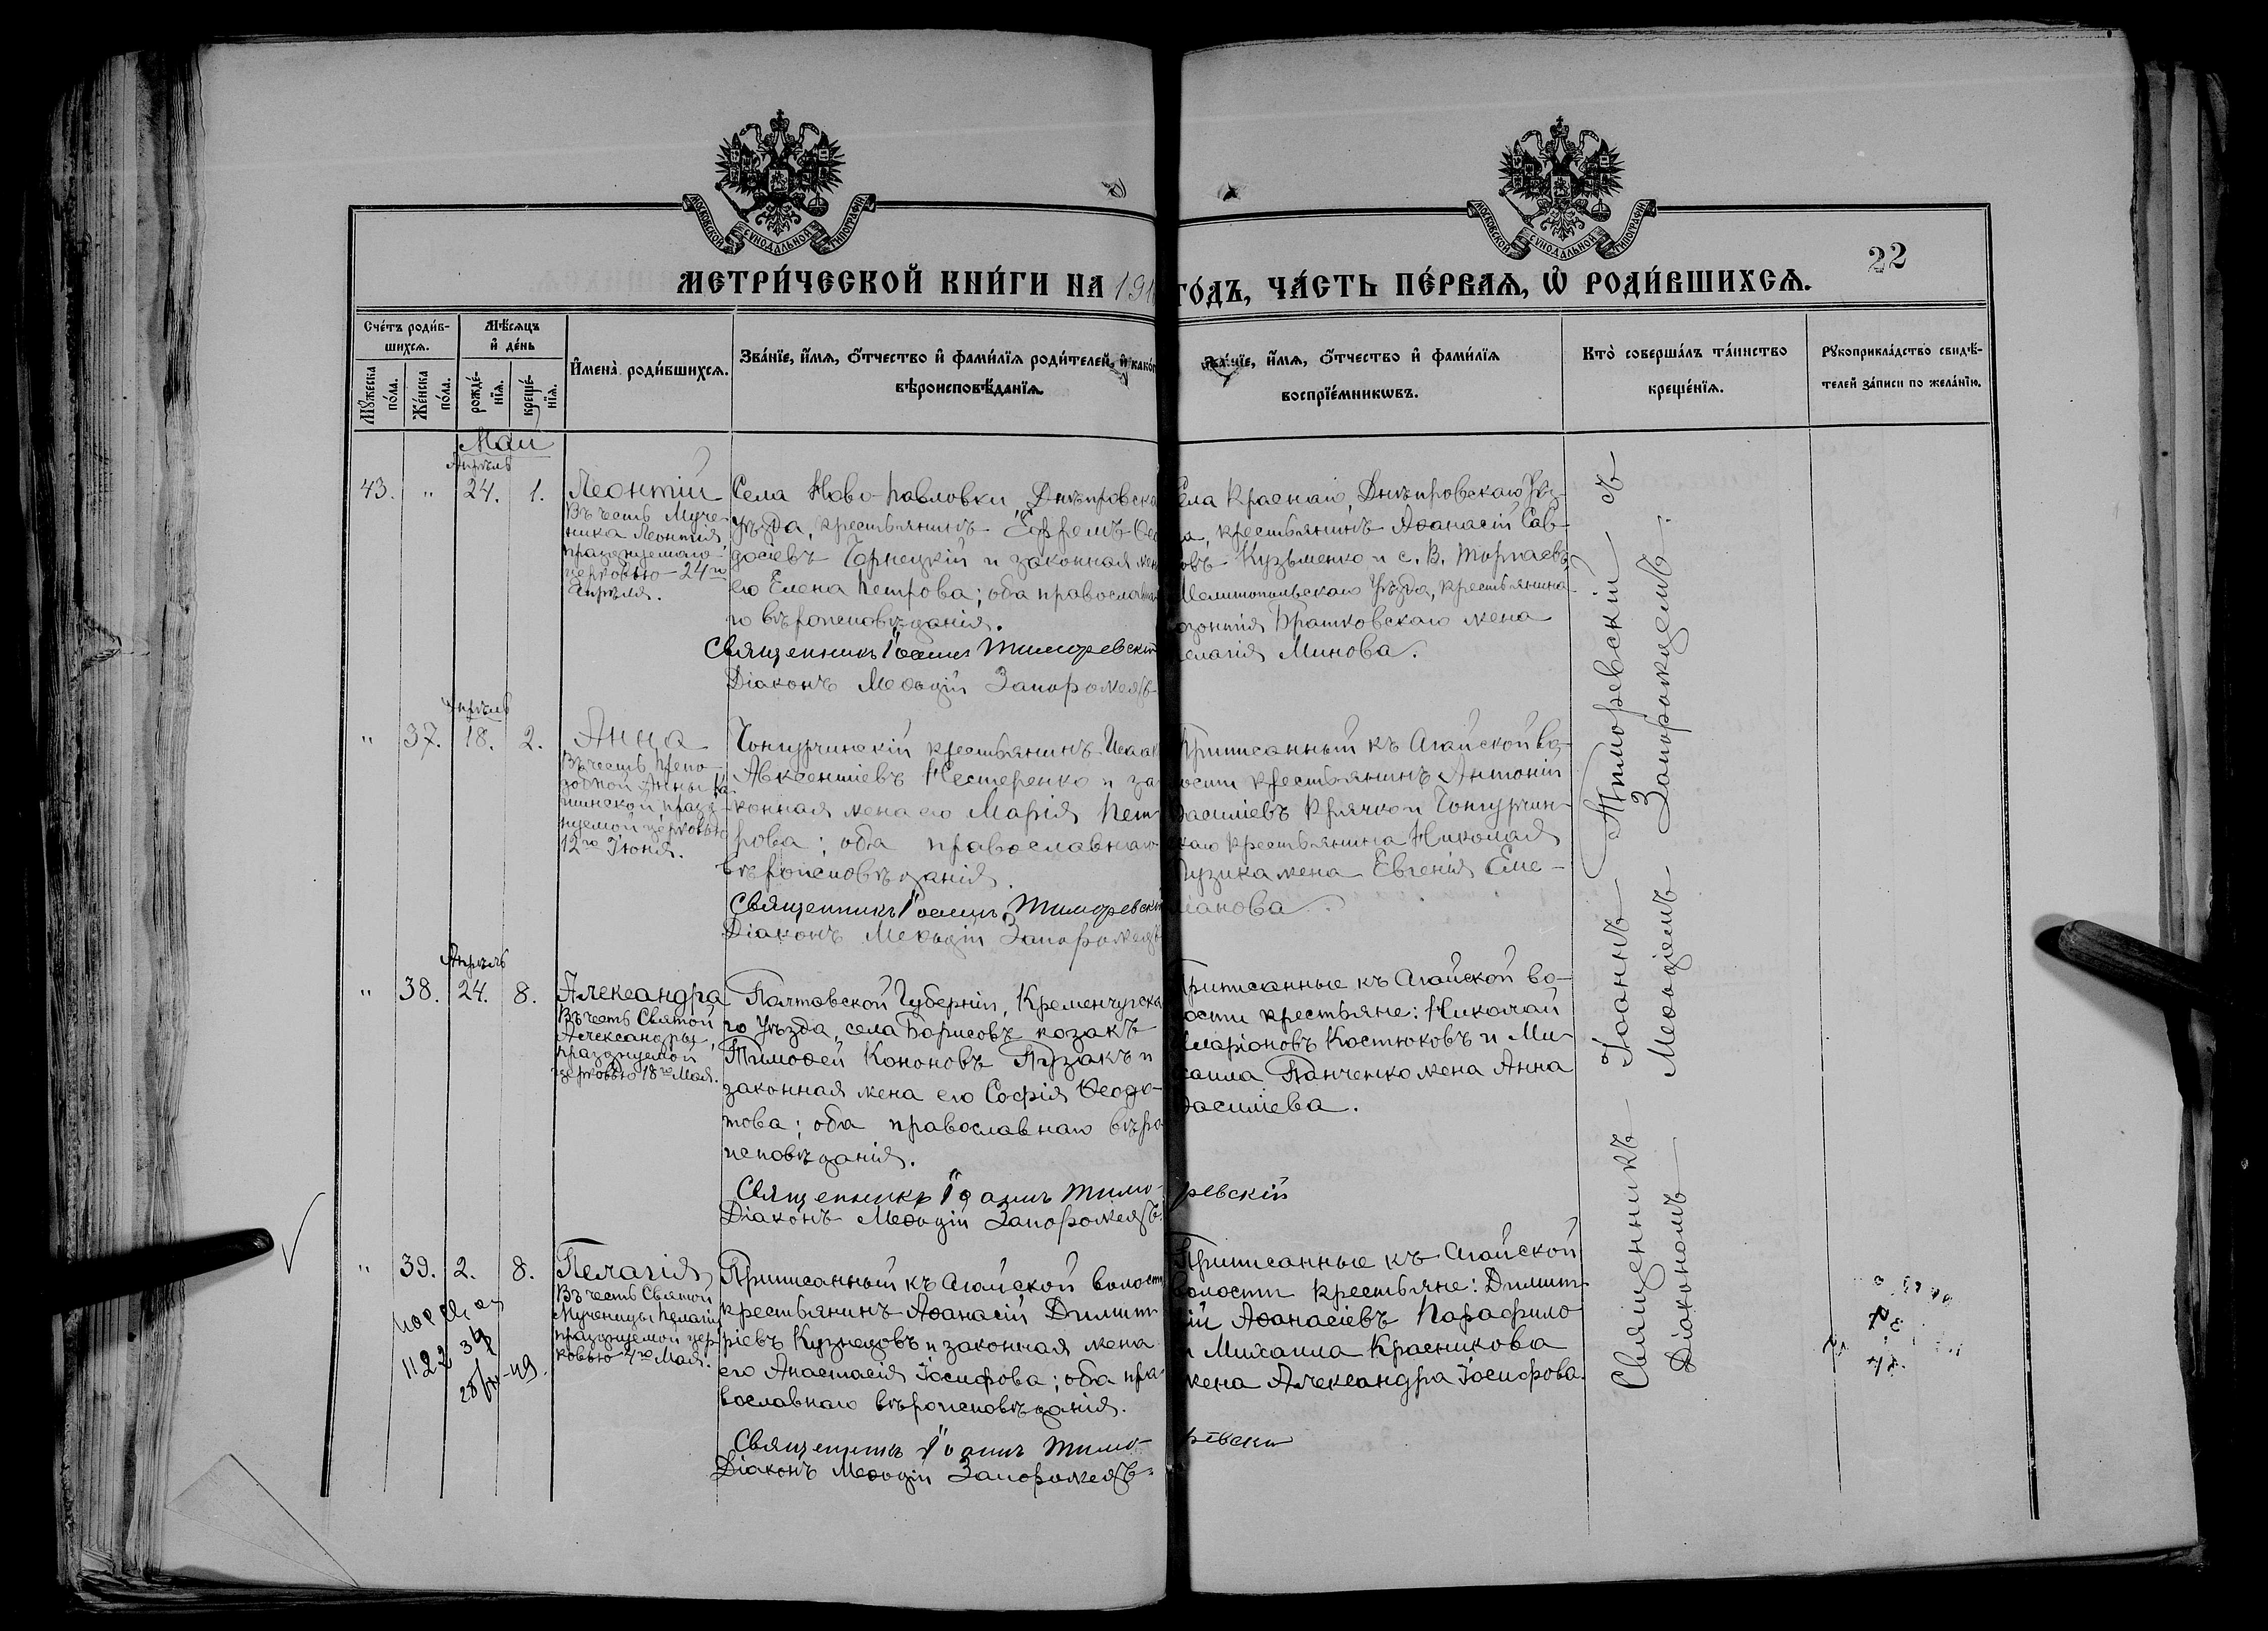 МОСКОВСКОЙ СѴНОДАЛЬНОЙ ТИПОГРАФІИ
МОСКОВСКОЙ СѴНОДАЛЬНОЙ ТИПОГРАФІИ
22
МЕТРИ́ЧЕСКОЙ КНИ́ГИ НА 191
ГО́ДЪ, ЧА́СТЬ ПЕ́РВАѦ, Ѡ҆ РОДИ́ВШИХСѦ.
Сче́тъ роди́в-
шихсѧ.
Мѣ́сѧцъ
и҆ де́нь
Мꙋ́жеска
по́ла.
Же́нска
по́ла.
рожде́-
нїѧ.
креще́-
нїѧ.
И҆мена̀ роди́вшихсѧ.
Зва́нїе, и҆́мѧ, ѻ҆́тчество и҆ фами́лїѧ роди́телей, и҆ како́г
вѣроисповѣ́данїѧ.
Зва́нїе, и҆́мѧ, ѻ҆́тчество и҆ фами́лїѧ
воспрїе́мникѡвъ.
Кто̀ соверша́лъ та́инство
креще́нїѧ.
Рꙋкоприкла́дство свидѣ́-
телей за́писи по жела́нїю.
Май
Апрѣль
43. " 24. 1.
Леонтій
Въ честь Муче-
ника Леонтія,
празднуемаго
церковью 24го
Апрѣля.
Села Ново-Павловки, Днѣпровска
Уѣзда, крестьянинъ Ефремъ Ѳео
досіевъ Чернецкій и законная жен
его Елена Петрова; оба православна
го вѣроисповѣданія.
Священникъ Іоаннъ Тиморевскій
Діаконъ Меѳодій Запорожецъ
ела Краснаго, Днѣпровскаго Уѣз-
а, крестьянинъ Аѳанасій Сав-
овъ Кузьменко и с. В. Торгаевъ,
Мелитопольскаго Уѣзда, крестьянина
озонтія Братковскаго жена
елагія Минова.
Апрѣль
" 37. 18. 2.
Анна
Въ честь Препо-
добной Анны Ка-
шинской, празд-
нуемой церковью
12го Іюня.
Чонгурчинскій крестьянинъ Исаак
Авксентіевъ Нестеренко и за-
конная жена его Марія Пет-
рова; оба православнаго
вѣроисповѣданія.
Священникъ Іоаннъ Тиморевскій
Діаконъ Меѳодій Запорожецъ
Приписанный къ Агайской во-
лости крестьянинъ Антоній
Василіевъ Крячко и Чонгурчин-
скаго крестьянина Николая
Пузика жена Евгенія Еме-
ліанова.
Апрѣль
" 38. 24. 8.
Александра
Въ честь Святой
Александры,
празднуемой
церковью 18го Мая.
Полтавской Губерніи, Кременчугска
го Уѣзда, села Борисовъ козакъ
Тимоѳей Кононовъ Пузакъ и
законная жена его Софія Ѳеодо-
това; оба православнаго вѣро
исповѣданія.
Священникъ Іоаннъ Тимо-
ревскій
Діаконъ Меѳодій Запорожецъ.
Приписанные къ Агайской во-
лости крестьяне: Николай
Иларіоновъ Костюковъ и Ми-
хаила Панченко жена Анна
Василіева.
" 39. 2. 8.
Пелагія
Въ честь Святой
Мученицы Пелагіи,
празднуемой цер-
ковью 4го Мая.
1122
Приписанный къ Агайской волости
крестьянинъ Аѳанасій Димит-
ріевъ Кузнецовъ и законная жена
его Анастасія Іосифова; оба пра-
вославнаго вѣроисповѣданія.
Священникъ Іоаннъ Тимо-
ревскій
Діаконъ Меѳодій Запорожецъ
Приписанные къ Агайской
волости крестьяне: Димит-
рій Аѳанасіевъ Парафило
и Михаила Красникова
жена Александра Іосифова.
Священникъ Іоаннъ Тиморевскій съ
Діакономъ Меѳодіемъ Запорожцемъ.